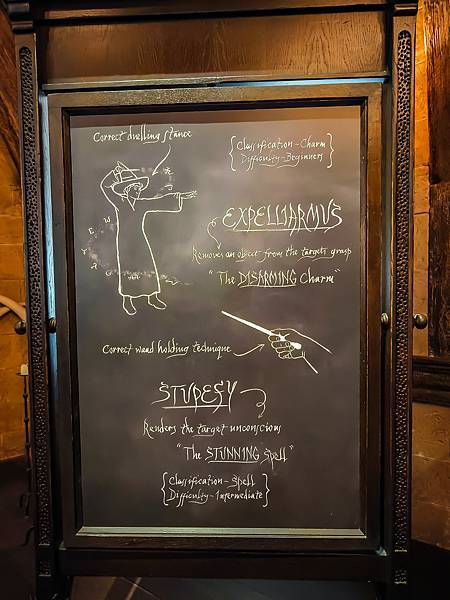 Correct duelling stance
{Classification - Charm
Difficulty - Beginners}
EXPELLIARMUS
Removes an object from the targets grasp
"The DISARMING Charm"
Correct wand holding technique
STUPEFY
Renders the target unconscious
"The STUNNING Spell"
{Classification - Spell
Difficulty - Intermediate}